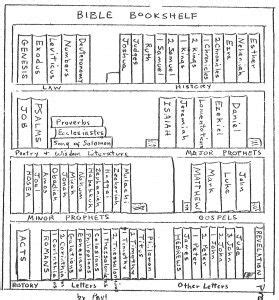 BIBLE BOOKSHELF
GENESIS
Exodus
Leviticus
Numbers
Deuteronomy
Joshua
Judges
Ruth
1 Samuel
2 Samuel
1 Kings
2 Kings
1 Chronicles
2 Chronicles
Ezra
Nehemiah
Esther
LAW
HISTORY
JOB
PSALMS
Proverbs
Ecclesiastes
Song of Solomon
ISAIAH
Jeremiah
Lamentations
Ezekiel
Daniel
Poetry & Wisdom Literature
MAJOR PROPHETS
HOSEA
Joel
Amos
Obadiah
Jonah
Micah
Nahum
Habakkuk
Zephaniah
Haggai
Zechariah
Malachi
MATTHEW
Mark
Luke
John
MINOR PROPHETS
GOSPELS
ACTS
ROMANS
1 Corinthians
2 Corinthians
Galatians
Ephesians
Philippians
Colossians
1 Thessalonians
2 Thessalonians
1 Timothy
2 Timothy
Titus
Philemon
HEBREWS
James
1 Peter
2 Peter
1 John
2 John
3 John
Jude
REVELATION
HISTORY
Letters
Other Letters
by Paul